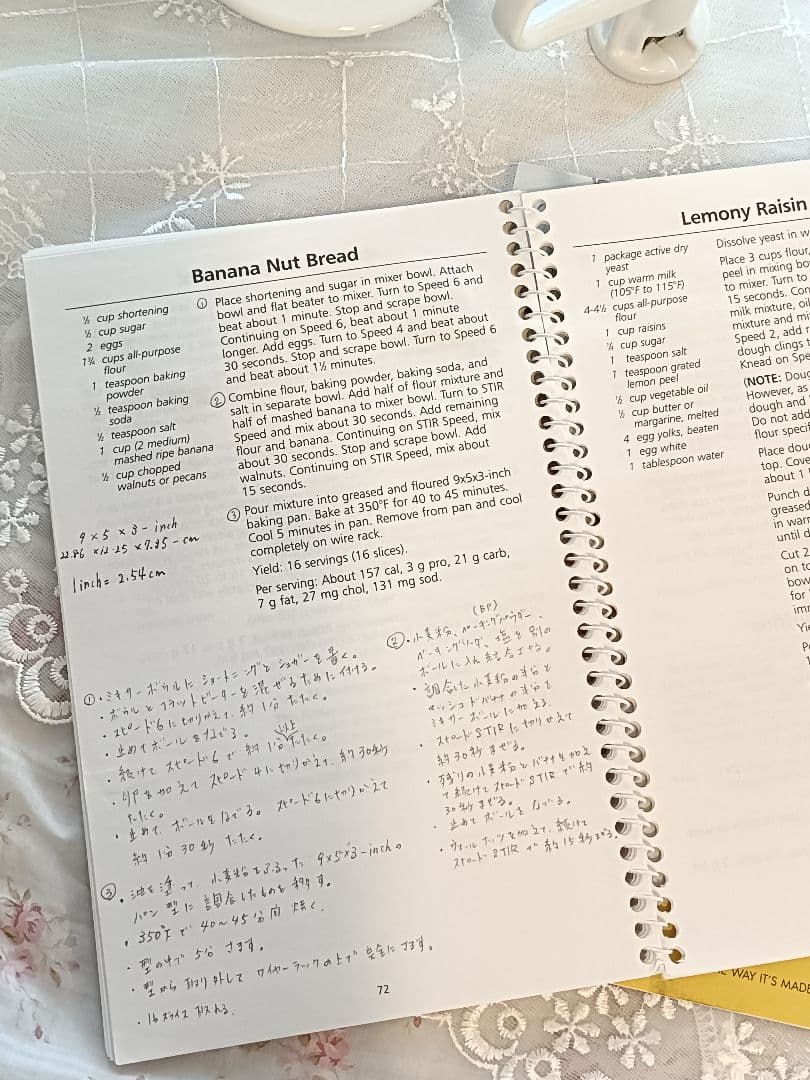 Banana Nut Bread
⅓ cup shortening
½ cup sugar
2 eggs
1¾ cups all-purpose
flour
1 teaspoon baking
powder
½ teaspoon baking
soda
½ teaspoon salt
1 cup (2 medium)
mashed ripe banana
½ cup chopped
walnuts or pecans
① Place shortening and sugar in mixer bowl. Attach
bowl and flat beater to mixer. Turn to Speed 6 and
beat about 1 minute. Stop and scrape bowl.
Continuing on Speed 6, beat about 1 minute
longer. Add eggs. Turn to Speed 4 and beat about
30 seconds. Stop and scrape bowl. Turn to Speed 6
and beat about 1½ minutes.
② Combine flour, baking powder, baking soda, and
salt in separate bowl. Add half of flour mixture and
half of mashed banana to mixer bowl. Turn to STIR
Speed and mix about 30 seconds. Add remaining
flour and banana. Continuing on STIR Speed, mix
about 30 seconds. Stop and scrape bowl. Add
walnuts. Continuing on STIR Speed, mix about
15 seconds.
③ Pour mixture into greased and floured 9x5x3-inch
baking pan. Bake at 350°F for 40 to 45 minutes.
Cool 5 minutes in pan. Remove from pan and cool
completely on wire rack.
Yield: 16 servings (16 slices).
Per serving: About 157 cal, 3 g pro, 21 g carb,
7 g fat, 27 mg chol, 131 mg sod.
9 × 5 × 3 - inch
1 inch = 2.54cm
①・ミキサーボウルにショートニングとシュガーを置く。
・ボウルとフラットビーターを混ぜるために付ける。
・スピード6に切りかえて、約1分たたく。
・止めてボールをなでる。
・続けてスピード6で約1分以上たたく。
・卵を加えてスピード4に切りかえて、約30秒
たたく。
・止めて、ボールをなでる。スピード6に切りかえて
約1分30秒たたく。
②・小麦粉、ベーキングパウダー(BP)、
ベーキングソーダ、塩を別の
ボールに入れ結合させる。
・調合した小麦粉の半分と
マッシュドバナナの半分を
ミキサーボールに加える。
・スピードSTIRに切りかえて
約30秒まぜる。
・残りの小麦粉とバナナを加え
て続けてスピードSTIRで約
30秒まぜる。
・止めてボールをなでる。
・ウォールナッツを加えて、続けて
スピードSTIRで約15秒まぜる。
③・油を塗って、小麦粉をふるった 9×5×3-inchの
パン型に調合したものを移す。
・350°Fで40~45分間焼く。
・型の中で5分さます。
・型から取り外してワイヤーラックの上で完全にさます。
・16スライス
72
Lemony Raisin
1 package active dry
yeast
1 cup warm milk
(105°F to 115°F)
4-4½ cups all-purpose
flour
1 cup raisins
¼ cup sugar
1 teaspoon salt
1 teaspoon grated
lemon peel
½ cup vegetable oil
½ cup butter or
margarine, melted
4 egg yolks, beaten
1 egg white
1 tablespoon water
Dissolve yeast in w
Place 3 cups flour,
peel in mixing bo
to mixer. Turn to
15 seconds. Con
milk mixture, oil
mixture and mi
Speed 2, add
dough clings t
Knead on Spe
(NOTE: Doug
However, as
dough and
Do not add
flour specif
Place dou
top. Cove
about 1
Punch d
greased
in warr
until d
Cut 2
on to
bow
for
imr
Yie
WAY IT'S MADE